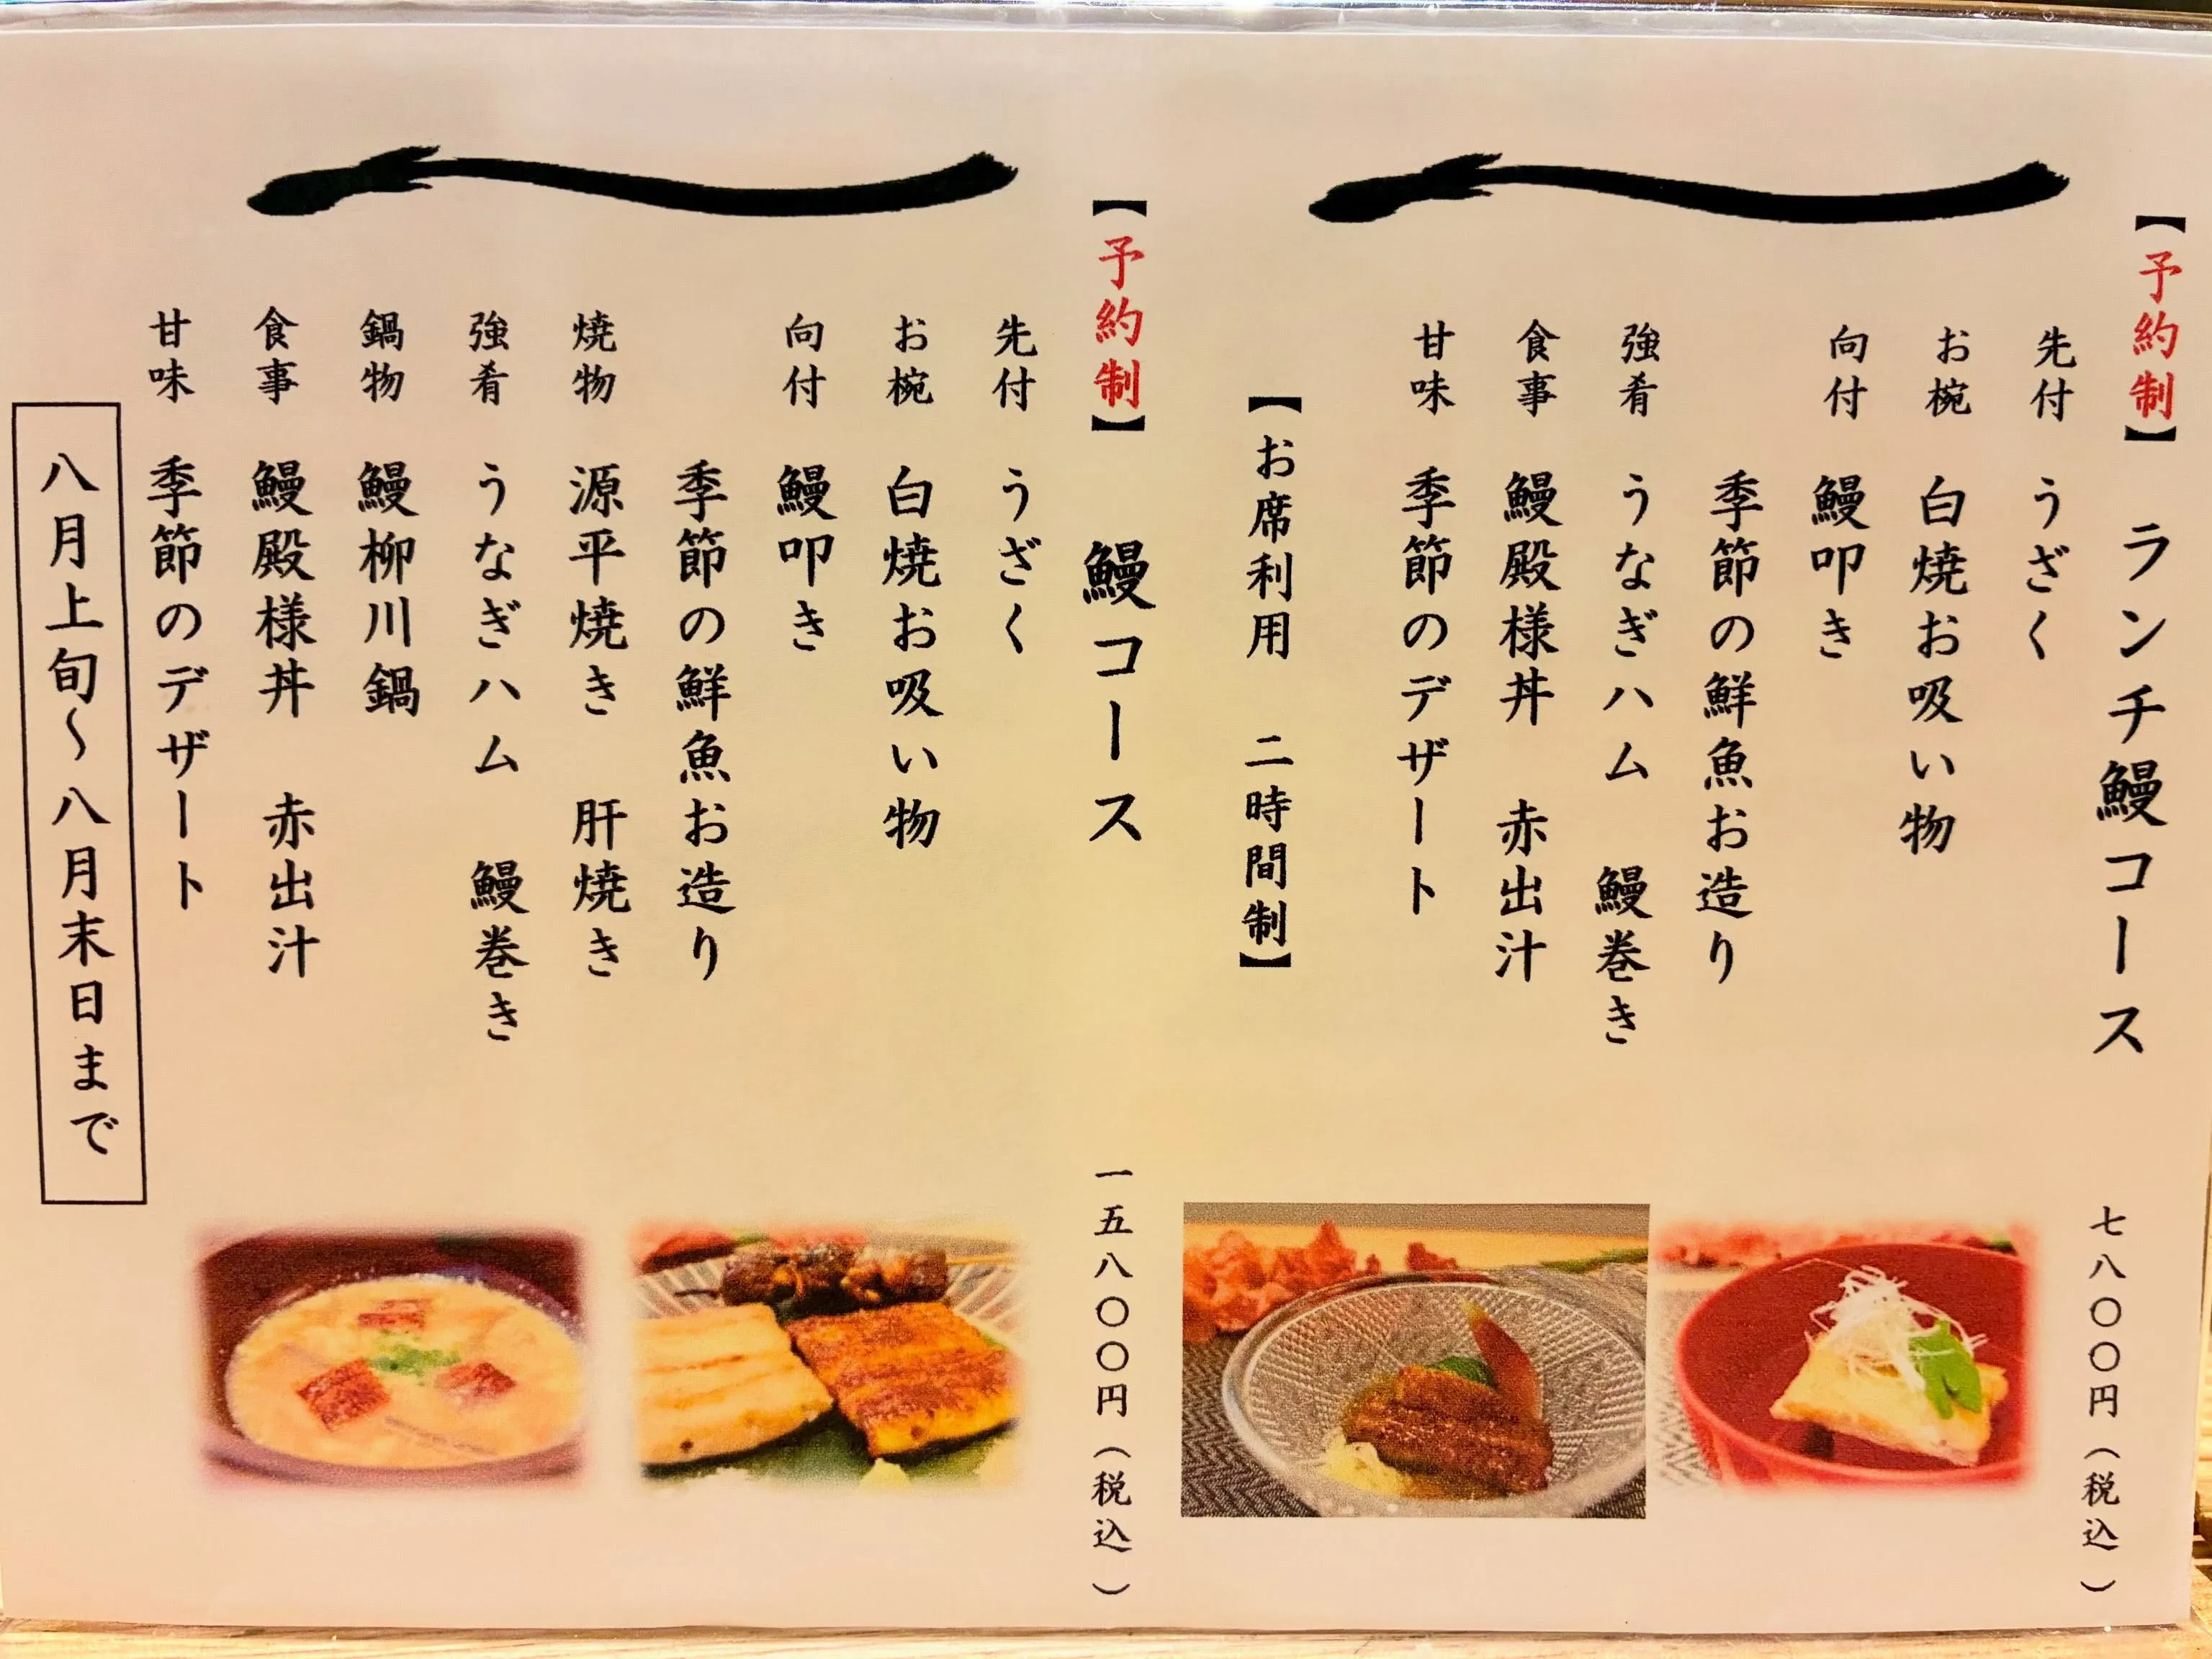 【予約制】 ランチ鰻コース 七八〇〇円(税込)
先付 うざく
お椀 白焼お吸い物
向付 鰻叩き
季節の鮮魚お造り
強肴 うなぎハム 鰻巻き
食事 鰻殿様丼 赤出汁
甘味 季節のデザート
【お席利用 二時間制】
【予約制】 鰻コース 一五八〇〇円(税込)
先付 うざく
お椀 白焼お吸い物
向付 鰻叩き
季節の鮮魚お造り
焼物 源平焼き 肝焼き
強肴 うなぎハム 鰻巻き
鍋物 鰻柳川鍋
食事 鰻殿様丼 赤出汁
甘味 季節のデザート
八月上旬~八月末日まで